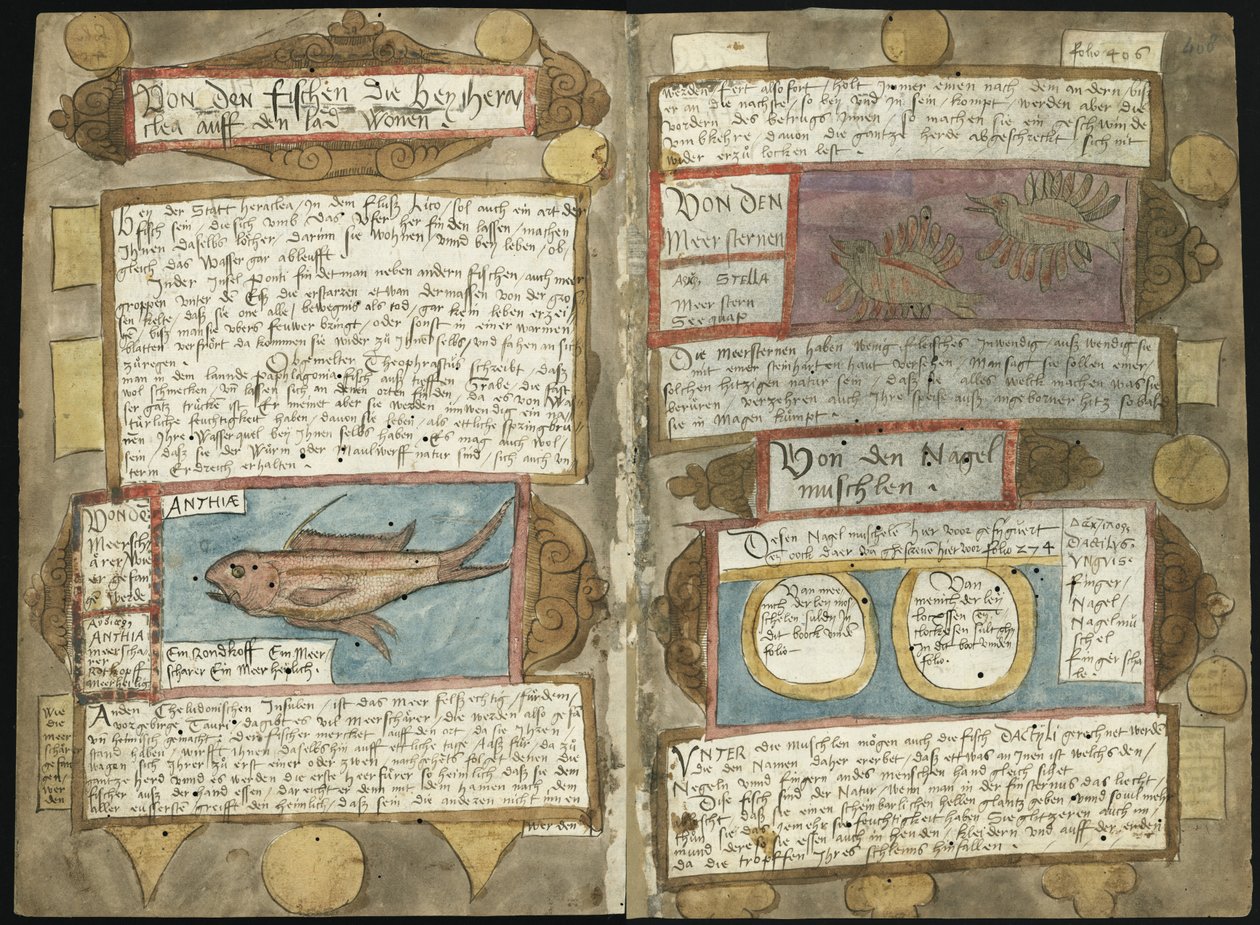 Von den Fischen die bey Hera/
clea auff den lād Wonen
Bey der Statt Heraclea/ in dem Fluß Lico/ sol auch ein art der
fisch sein/ die sich umb das Ufer her finden lassen/ machen
Ihnen daselbs löcher/ darinn sie wohnen unnd bey leben/ ob
gleich das Wasser gar ablaufft
In der Insel Ponti findet man neben andern fischen/ auch meer
groppen unter dē Eyß die erstarzen etwan dermassen von der gros
sen kelte/ daß sie one alle/ bewegnis als tod/ gar kein leben erzei/
ge/ biß man sie ubers feuwer bringt/ oder sonst in einer warmen/
blatten verfrört da kommen sie wider zu Ihnē selbs/ und fahen an sich
züregen. Obgemelter Theophrastus schreibt/ daß
man in dem lannde Paphlagonia fisch auß tieffen Grabe/ die fast
wol schmecken/ uñ lassen sich an denen orten finden/ da es von Was/
ser gātz trucken ist. Er meinet aber sie werden inwendig ein na/
türliche feuchtigkeit haben/ davon sie leben/ als ettliche springbru/
nen/ Ihre Wasser quel bey Ihnen selbs haben. Es mag auch wol/
sein/ daß sie der Würm oder Maulwerff natur sind/ sich auch un
term Erdreich erhalten.
Von dē
Meersch
ärer/ wie
er gefan
gē werde
ANTHIA
meerscha/
rer
Rotkorff
Meerheilig
ANTHIÆ
Ein Rondkoff Ein Meer/
scharer Ein Meer heilich.
Wie
die
meer
schärer
gefan
gen/
wer
den
An den Chelidonischen Insulen/ ist das Meer felsechtig/ für dem/
vorgebirge Tauri/ da gibt es vil Meerschärer/ die werden also gefā
uñ heimisch gemacht. Der fischer mercket auff den ort/ da sie Ihren/
stand haben/ wirfft Ihnen daselbs hin auff ettliche tage/ Aaß für/ da zü
wagen sich Ihrer zü erst einer oder zwen/ nachgehets folget denen die
gantze herd unnd es werden die erste heerfürer so heimlich/ daß sie dem
fischer auß der hand essen/ da reicht er denn mit dem hamen nach dem
aller eusserste/ greifft den heimlich/ daß sein die anderen nicht innen
werden
folio 406
406
werden/ fert also fort/ holt Immer einen nach dem andern/ biß
er an die nachste/ so bey und in sein/ kompt/ werden aber die
vordern des betrugs Innen/ so machen sie ein geschwinde
umbkehre/ davon die gantze herde abgeschreckt/ sich nit
wider erzü locken lest.
Von den
Meer sternen
STELLA
Meer stern
See quap
Die Meersternen haben wenig fleisches Inwendig/ außwendig sie
mit einer steinharten haut versehen/ Man sagt sie sollen einer/
solchen hitzigen natur sein/ daß sie alles welck machen was sie
berüren/ verzehren auch Ihre speise auß angeborner hitz so bald
sie in Magen kumpt.
Von den Nagel
muschlen.
Desen Nagel muschele hier voor gefiguert
folio 274
Dactilus.
Ungvis.
Finger/
Nagel/
Nagelmu
schel
Fingerscha
le.
Van mee
nich derley mos
schelen suldij in
dit boock vinden
folio
Van
menich der ley
in dit boec vinden
folio.
Unter die muschlen mögen auch die fisch Dactÿli gerechnet werde/
die den Namen daher ererbet/ daß etwas an Inen ist welchs den/
Negeln unnd fingern an des menschen hand gleich sihet.
Dise fisch sind der Natur/ wenn man in der finsternus das liecht/
lescht/ daß sie einen scheinbarlichen hellen glantz geben unnd souil mehr
thun sie das/ je mehr sie feuchtigkeit haben/ Sie glitzeren auch im
mund deren so sie essen auch in henden/ kleidern und auff der erden
da die tropffen Ihres schlems hinfallen.